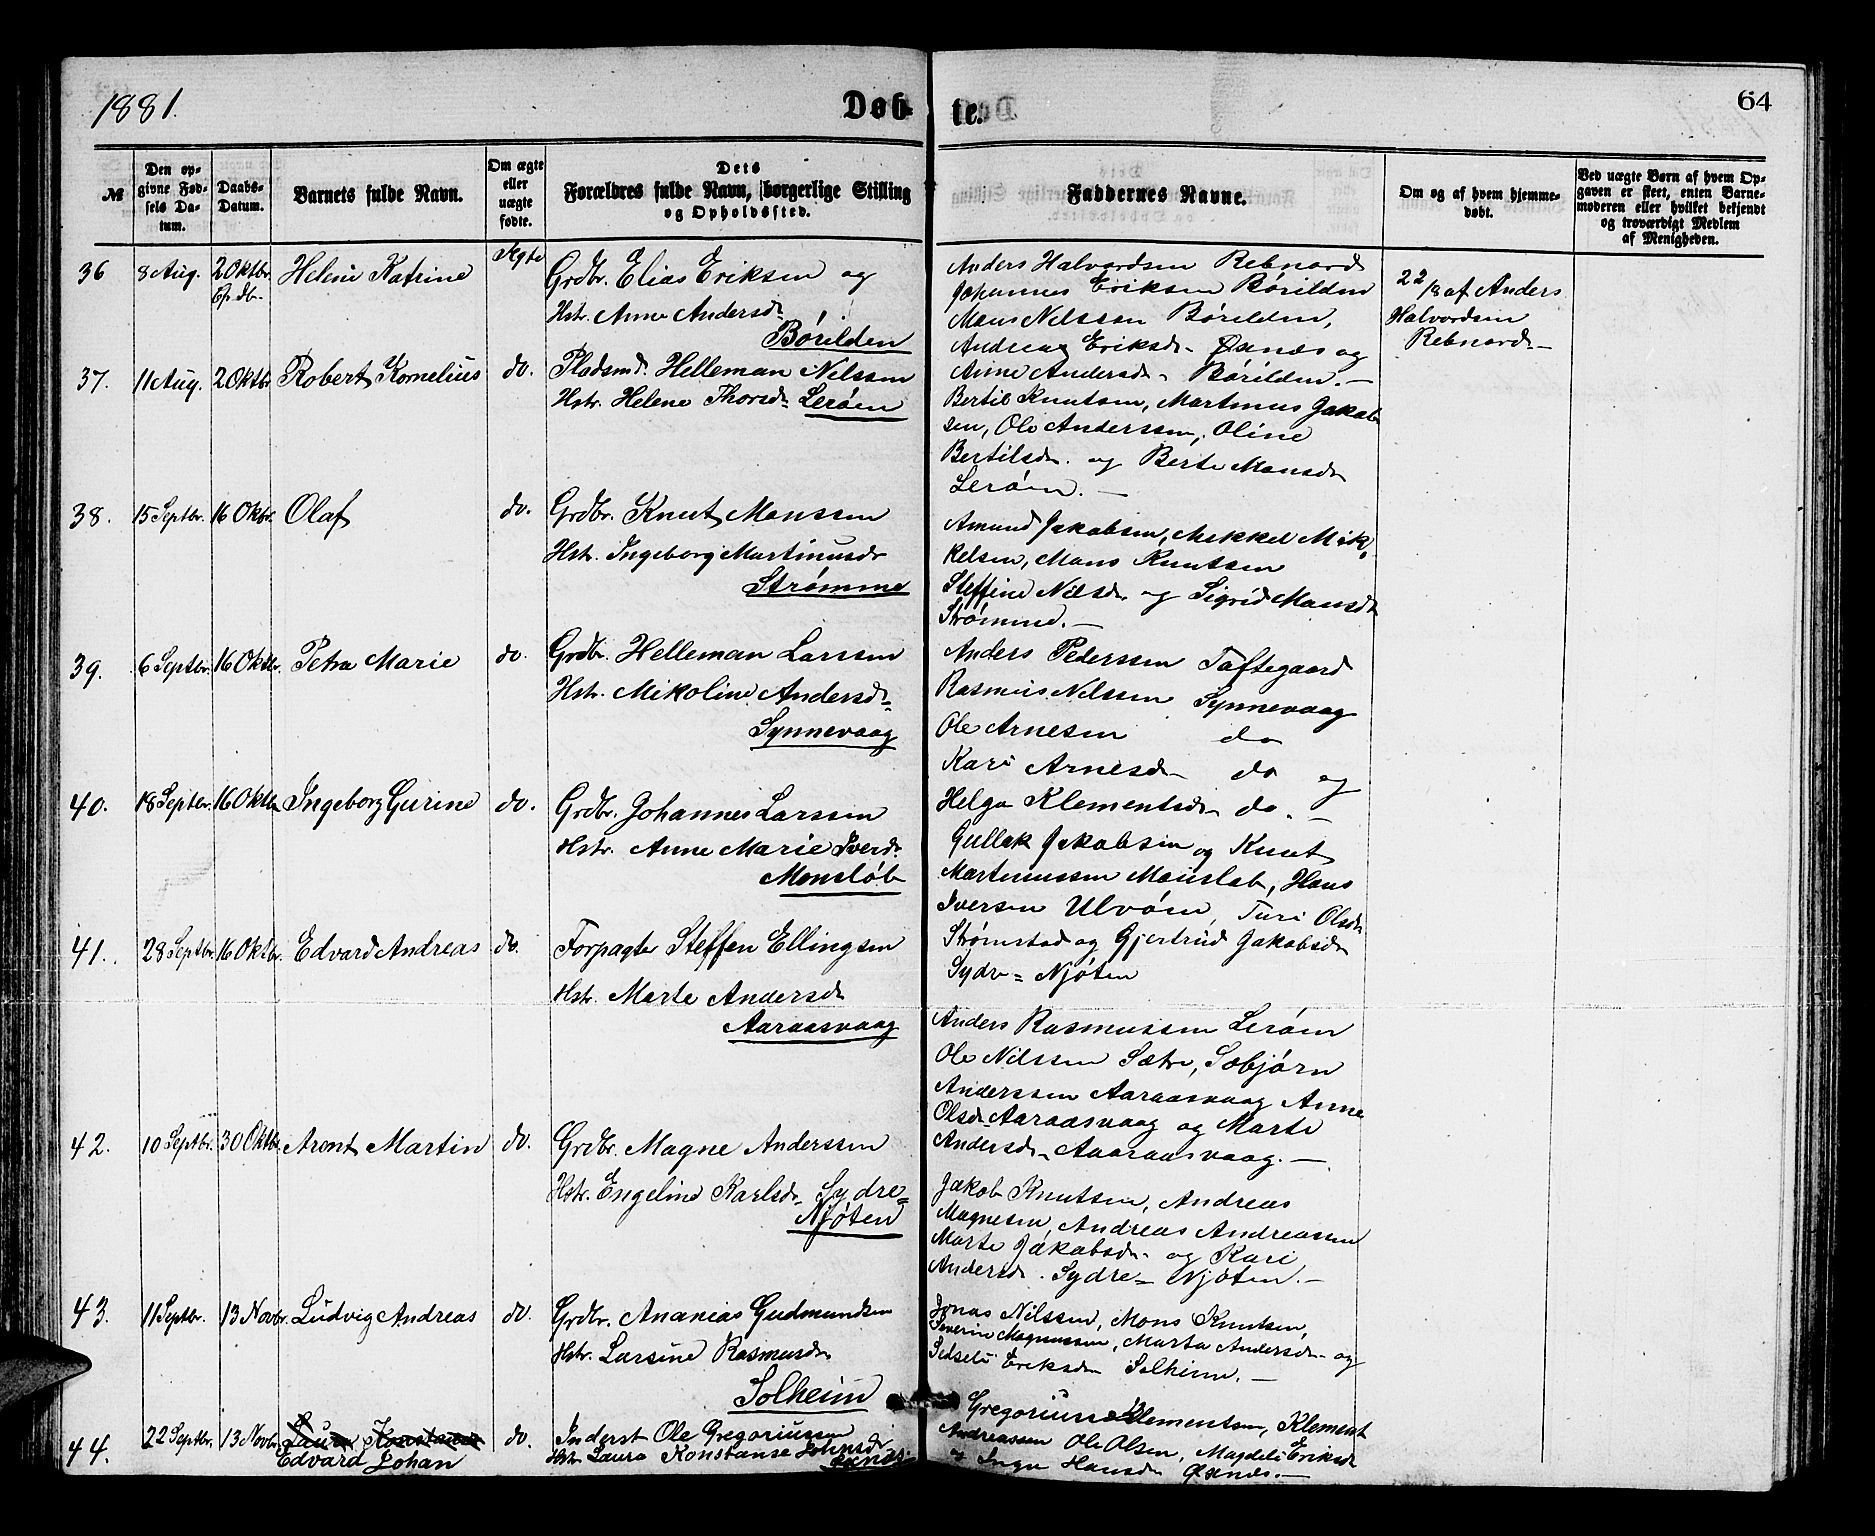 1881.
Døb-
te.
64
№
Den op-
givne Fød-
sels Da-
tum.
Daabs-
Datum.
Barnets fulde Navn.
Om ægte
eller
uægte
fødte.
Dets
Forældres fulde Navn, borgerlige Stilling
og Opholdssted.
Faddernes Navne.
Om og af hvem hjemme-
døbt.
Ved uægte Børn af hvem Op-
gaven er skeet, enten Barne-
moderen eller hvilket bekjendt
og troværdigt Medlem
af Menigheden.
36
8 Aug.
2 Oktbr.
Helene Katrine
Ægte
Grdbr. Elias Eriksen og
Hstr. Anne Andersdr
Børilden
Anders Halvordsen Rebnord
Johannes Eriksen Børilden
Mons Nilssen Børilden,
Andrea Eriksdr Øxnæs og
Anne Andersdr Børilden. —
22/8 af Anders
Halvordsen
Rebnord. —
37.
11 Aug.
2 Oktbr
Robert Kornelius
do.
Pladsmd. Helleman Nilssen
Hstr. Helene Thorsdr Lerøen
Bertil Knutsen, Martinus Jakob-
sen, Ole Anderssen, Oline
Bertilsdr. og Berte Monsdr
Lerøen. —
38.
15 Septbr.
16 Oktbr.
Olaf
do.
Grdbr. Knut Monssen
Hstr. Ingeborg Martinusdr
Strømme
Amund Jakobsen, Mikkel Mik-
kelsen, Mons Knutssen
Steffine Nilsdr og Sigrid Monsdr
Strømme. —
39.
6 Septbr.
16 Oktbr.
Petra Marie
do.
Grdbr. Helleman Larssen
Hstr. Mikoline Andersdr
Synnevaag
Anders Pederssen Toftegaard
Rasmus Nilssen Synnevaag
Ole Arnesen do
Kari Arnesdr do og
Helga Klementsdr do. —
40.
18 Septbr.
16 Oktbr
Ingeborg Gurine
do.
Grdbr. Johannes Larssen
Hstr. Anne Marie Iversdr.
Monsløb
Gullak Jakobsen og Knut
Martinussen Monsløb, Hans
Iversen Ulvøen, Turi Olsdr
Strømstad og Gjertrud Jakobsdr
Sydre- Njøten
41.
28 Septbr.
16 Oktbr.
Edvard Andreas
do.
Forpagter Steffen Ellingsen
Hstr. Marte Andersdr
Aaraasvaag
Anders Rasmussen Lerøen
Ole Nilssen Sætre, Sobjørn
Anderssen Aaraasvaag Anne
Olsdr Aaraasvaag og Marte
Andersdr Aaaraasvaag. —
42.
10 Septbr.
30 Oktbr.
Aront Martin
do.
Grdbr. Magne Anderssen
Hstr. Engeline Karlsdr Sydre-
Njøten
Jakob Knutssen, Andreas
Magnesen, Andreas Andreassen
Marte Jakobsdr og Kari
Andersdr. Sydre- Njøten. —
43.
11 Septbr.
13 Novbr.
Ludvig Andreas
do.
Grdbr. Ananias Gudmundsen
Hstr. Larsine Rasmusdr
Solheim
Jonas Nilssen, Mons Knutsen,
Severin Magnussen, Marta Andersdr og
Sidseli Eriksdr Solheim. —
44.
22 Septbr.
13 Novbr.
Laura Konstanse
Edvard Johan
do.
Inderst Ole Gregoriussen
Hstr. Laura Konstanse Johnsdr
Øxnæs.
Gregorius Klementsen, Klement
Andreassen Ole Olsen, Magdeli Eriksdr
og Inga Hansdr Øxnæs. —